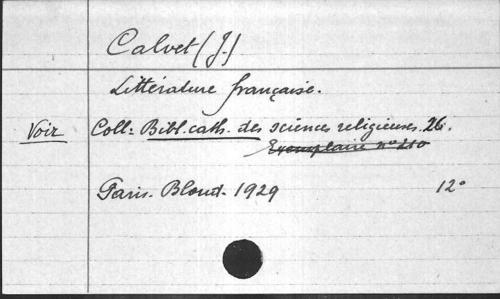 Calvet (J.)
Littérature française.
Voir Coll: Bibl. cath. des sciences religieuses. 26.
Exemplaire n° 210
Paris. Bloud. 1929 12°